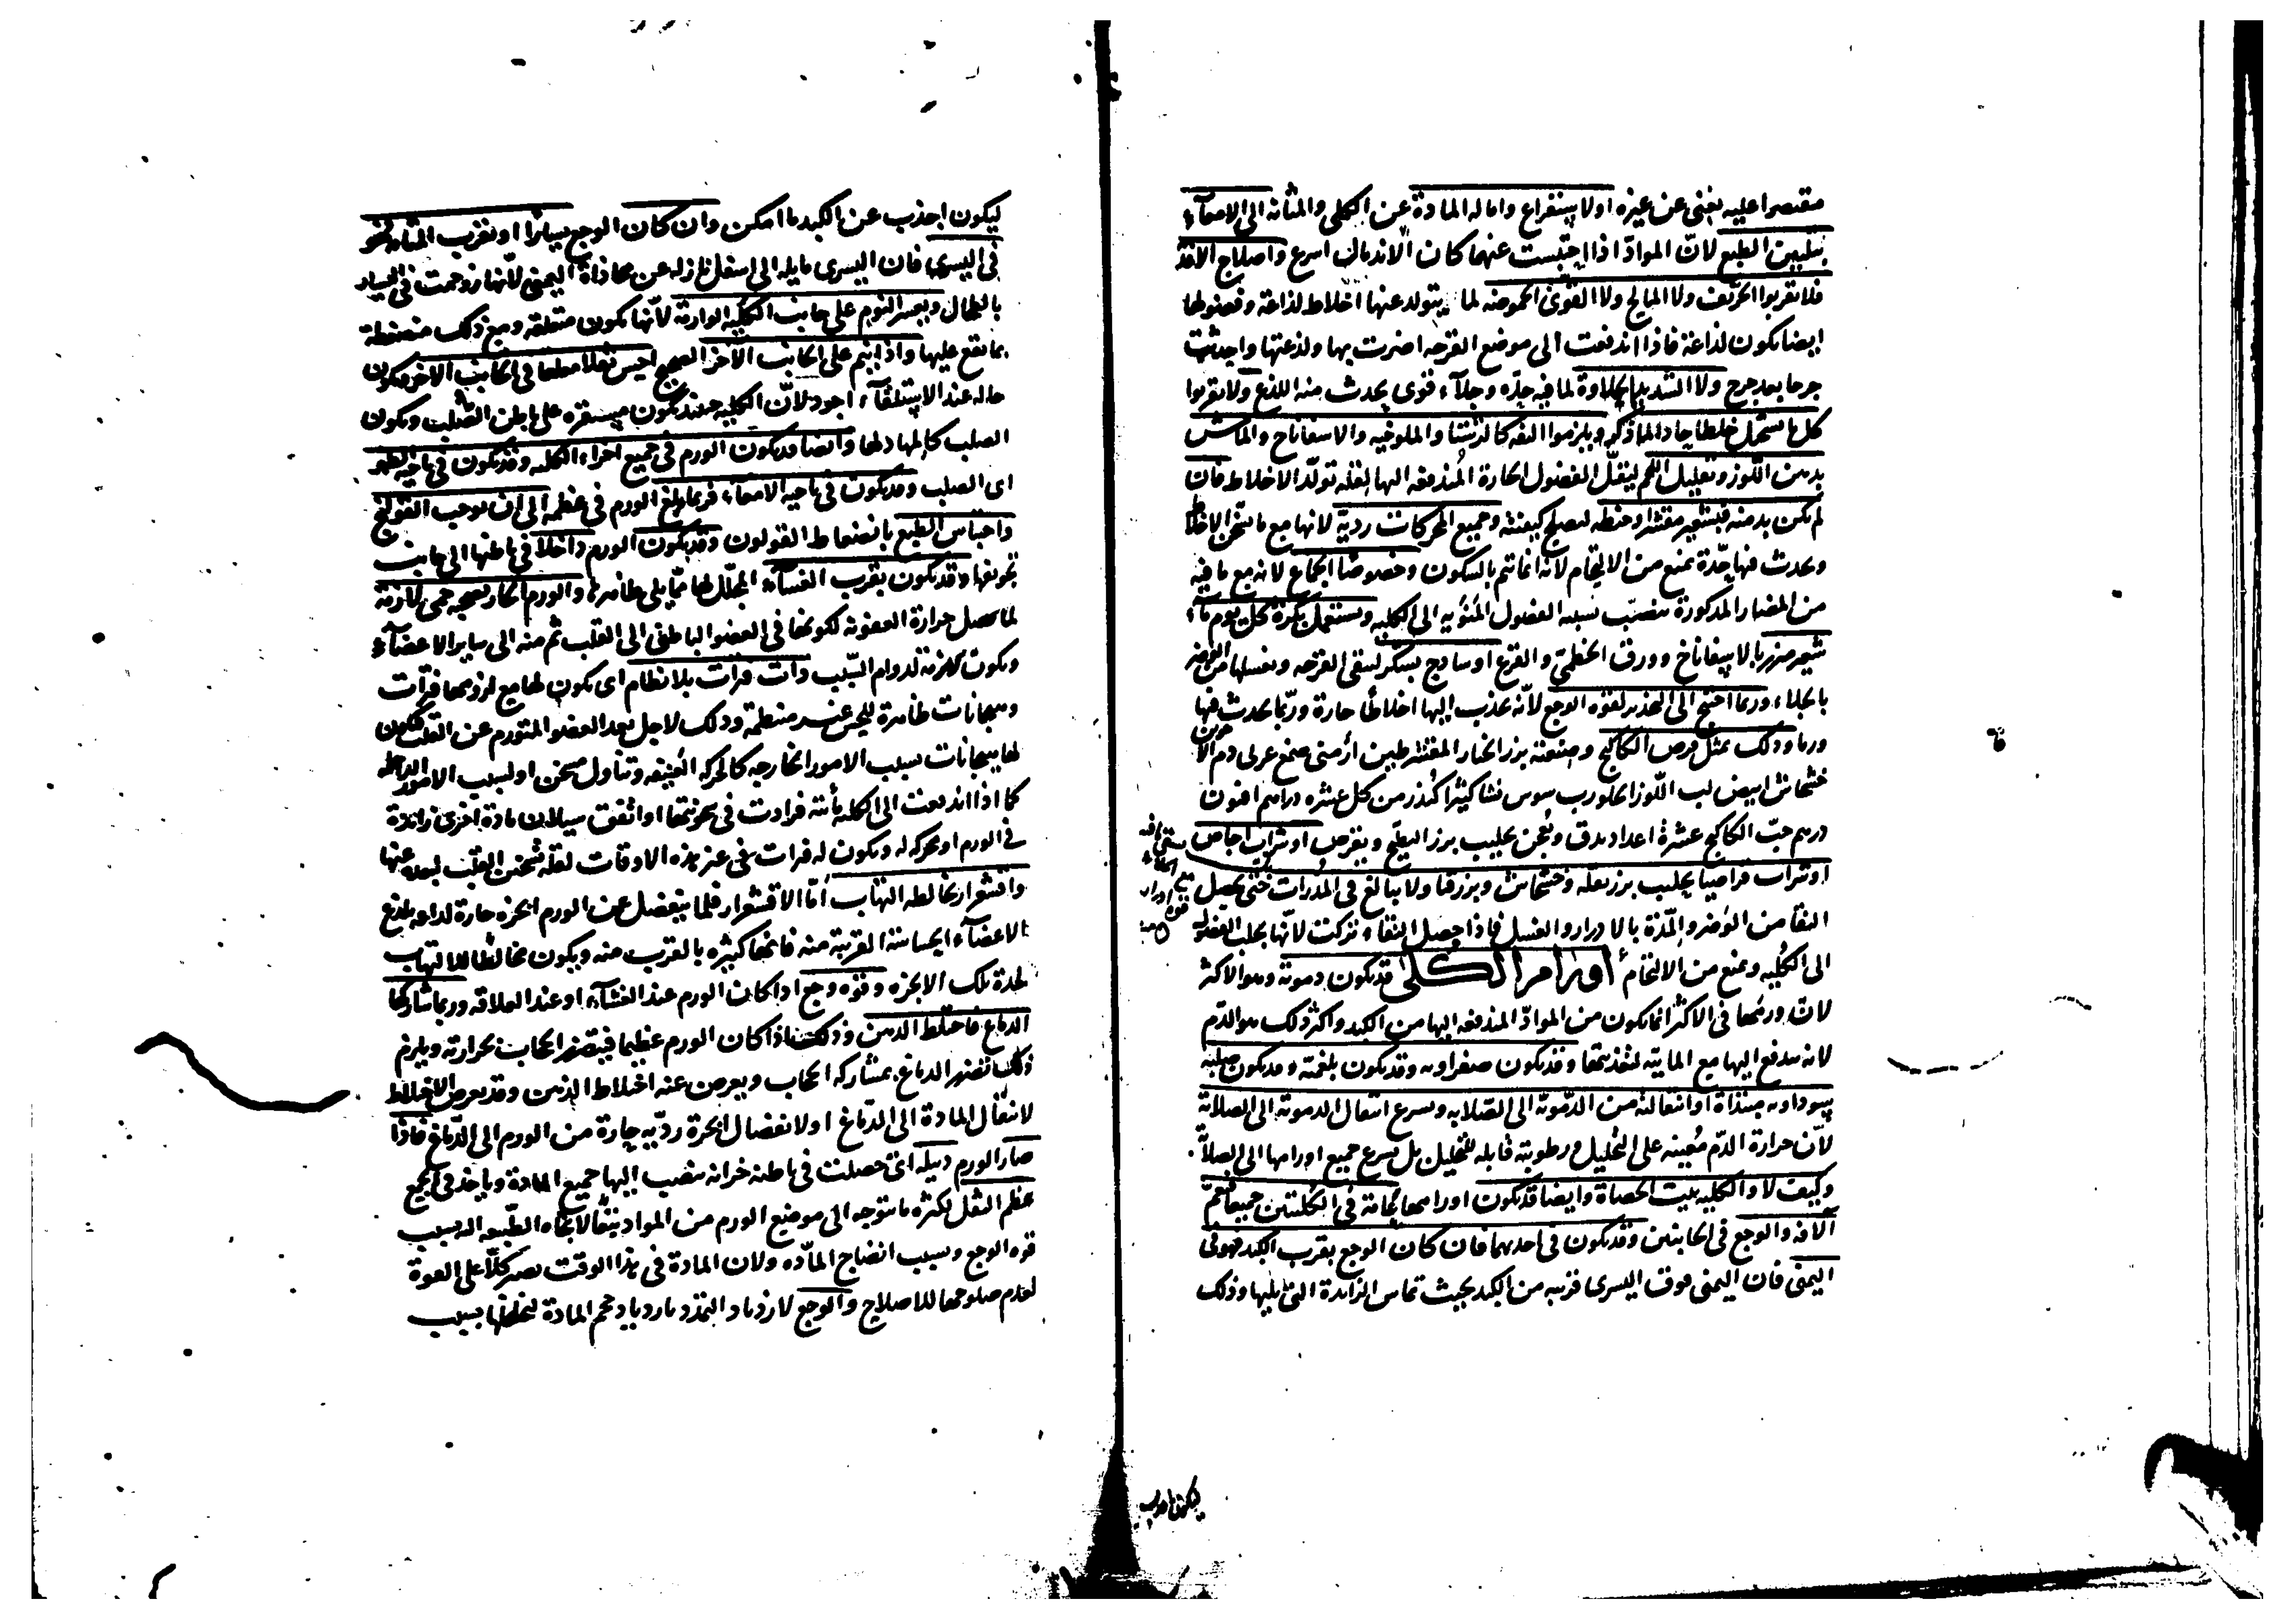 مقتصرا عليه يغنى عن غيره اولا باستفراغ وامالة المادة عن الكلى والمثانة الى الامعآء
بتليين الطبع لانّ الموادّ اذا احتبست عنهما كان الاندمال اسرع واصلاح الاغذية
فلا يقربوا الحرّيف ولا المالح ولا القوىّ الحموضه لما يتولد عنها اخلاط لذاعة وفضولها
ايضا يكون لذاعة فاذا اندفعت الى موضع القرحه اضرت بها ولذعتها واحدثت
جرحا بعد جرح ولا الشديد الحلاوة لما فيه حدّه وجلآء قوى يحدث منه اللذع ولا يقربوا
كل ما يستحيل خلطا حادا لما ذكر ويلزموا التفه كالنشا والملوخيه والاسفاناخ والماش
بدهن اللوز وتقليل اللحم ليقلّ الفضول الحارة المندفعه اليها لقله تولّد الاخلاط فان
لم يكن بد منه فبشعير مقشر او حنطه ليصلح كيفيته وجميع الحركات رديّة لانها مع ما تسخن الاخلاط
ويحدث فيها حدّة تمنع من الالتحام لانه انما تتم بالسكون وخصوصا الجماع لانه مع ما فيه
من المضار المذكورة تنصبّ بسببه الفضول المنويه الى الكليه ويستعمل بكرة كل يوم مآء
شعير مبزر بالاسفاناخ وورق الخطمى والقرع او ساذج بسكر لينقى القرحه ويغسلها من الوضر
بالجلاء وربما احتيج الى المخدر لقوه الوجع لانّه يجذب اليها اخلاطا حارة وربّما يحدث فيها
ورما وذلك بمثل قرص الكاكنج وصنعته بزر الخيار المقشر طين ارمنى صمغ عربى دم الاخوين
خشخاش ابيض لب اللوز الحلو رب سوس نشا كثيرا كندر من كل عشره دراهم افيون
درهم حبّ الكاكنج عشرة اعداد يدق ويعجن بحليب بزر البطيخ ويقرص او شراب اجاص
او شراب قراصيا بحليب بزر بقله وخشخاش وبزر قثا ولا يبالغ فى المدرات حتى يحصل
النقا من الوضر والمدّة بالادرار والغسل فاذا حصل النقاء تركت لانّها تجلب الفضول
الى الكليه وتمنع من الالتحام اورام الكلى قد يكون دموية وهو الاكثر
لان ورمها فى الاكثر انما يكون من الموادّ المندفعه اليها من الكبد واكثر ذلك هو الدّم
لانه يندفع اليها مع المائيّه لتغذيتها وقد يكون صفراويه وقد يكون بلغميّه وقد يكون صلبه
سوداويه مبتداة او انتقاليّة من الدّمويه الى الصّلابه ويسرع انتقال الدمويه الى الصلابة
لانّ حرارة الدّم مُعينه على التحليل ورطوبته قابله للتحليل بل يسرع جميع اورامها الى الصلابة
وكيف لا والكليه بيت الحصاة وايضا قد يكون اورامها عامة فى الكليتين جميعا فتعمّ
الآفه والوجع فى الجانبين وقد يكون فى احديهما فان كان الوجع بقرب الكبد فهو فى
اليمنى فان اليمنى فوق اليسرى قريبه من الكبد بحيث تماس الزايدة التى تليها وذلك
ليكون اجذب
ليكون اجذب عن الكبد ما امكن وان كان الوجع يسارا او بقرب المثانة فهو
فى اليسرى فان اليسرى مايله الى اسفل نازله عن محاذاة اليمنى لانّها زوحمت فى اليسار
بالطحال ويعسر النوم على جانب الكليه الوارمة لانّها يكون متعلقه ومع ذلك منضغطة
بما يقع عليها واذا نيم على الجانب الآخر الصحيح احس ثقلا معلقا فى الجانب الاخر ويكون
حاله عند الاستلقآء اجود لانّ الكليه حينئذ يكون مستقره على باطن الصلب ويكون
الصلب كالمهاد لها وايضا قد يكون الورم فى جميع اجزاء الكليه وقد يكون فى ناحيه الظهر
اى الصلب وقد يكون فى ناحيه الامعآء فربما بلغ الورم فى عظمه الى ان يوجب القولنج
واحتباس الطبع بانضغاط القولون وقد يكون الورم داخلا فى باطنها الى جانب
تجويفها وقد يكون بقرب الغشآء المجلّل لها ممّا يلى ظاهرها والورم الحار يصحبه حمى لازمة
لما يصل حرارة العفونه لكونها فى العضو الباطنى الى القلب ثم منه الى ساير الاعضآء
ويكون لازمة لدوام السّبب ذات فترات بلا نظام اى يكون لها مع لزومها فترات
وهيجانات ظاهرة للحس غير منتظمه وذلك لاجل بعد العضو المتورم عن القلب فيكون
لها هيجانات بسبب الامور الخارجه كالحركه العنيفه وتناول مسخن او لسبب الامور الداخله
كما اذا اندفعت الى الكليه مائيه فزادت فى سخونتها او اتفق سيلان مادة اخرى زائدة
فى الورم او محركه له ويكون له فترات فى غير هذه الاوقات لقلّه تسخن القلب لبعده عنها
واقشعرار يخالطه التهاب امّا الاقشعرار فلما ينفصل عن الورم ابخره حارة لذاعه يلذع
الاعضآء الحساسة القريبة منه فانها كثيره بالقرب منه ويكون مخالطا للالتهاب
لحدة تلك الابخره وقوه وجع اذا كان الورم عند الغشآء او عند العلاقه وربما شاركها
الدماغ فاختلط الذهن وذلك اذا كان الورم عظيما فيتضرر الحجاب بحرارته ويلزم
ذلك تضرر الدماغ بمشاركه الحجاب ويعرض عنه اختلاط الذهن وقد يعرض الاختلاط
لانتقال المادة الى الدّماغ او لانفصال ابخرة رديّه حارة من الورم الى الدّماغ فاذا
صار الورم دبيله اى حصلت فى باطنه خزانه تنصب اليها جميع المادة وياخذ فى الجمع
عظم الثقل لكثره ما يتوجه الى موضع الورم من المواد تبعا لاتجاه الطّبيعه اليه بسبب
قوه الوجع وبسبب انضاج المادّه ولان المادة فى هذا الوقت يصير كلّا على القوة
لعدم صلوحها للاصلاح والوجع لازدياد التمدد بازدياد حجم المادة لتخلخلها بسبب